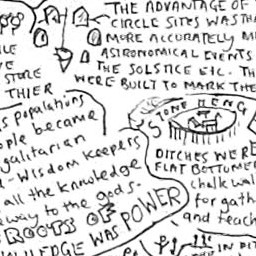 THE ADVANTAGE OF
CIRCLE SITES WAS THA
MORE ACCURATELY M
ASTRONOMICAL EVENTS
THE SOLSTICE ETC. TH
WERE BUILT TO MARK THE
LE
VE
STORE
THIER
s populations
ople became
galitarian
wisdom keepers
all the knowledge
way to the gods.
ROOTS OF
LEDGE WAS POWER
STONE HENG
DITCHES WERE
FLAT BOTTOME
chalk wal
for gath
and teach
IN PIT